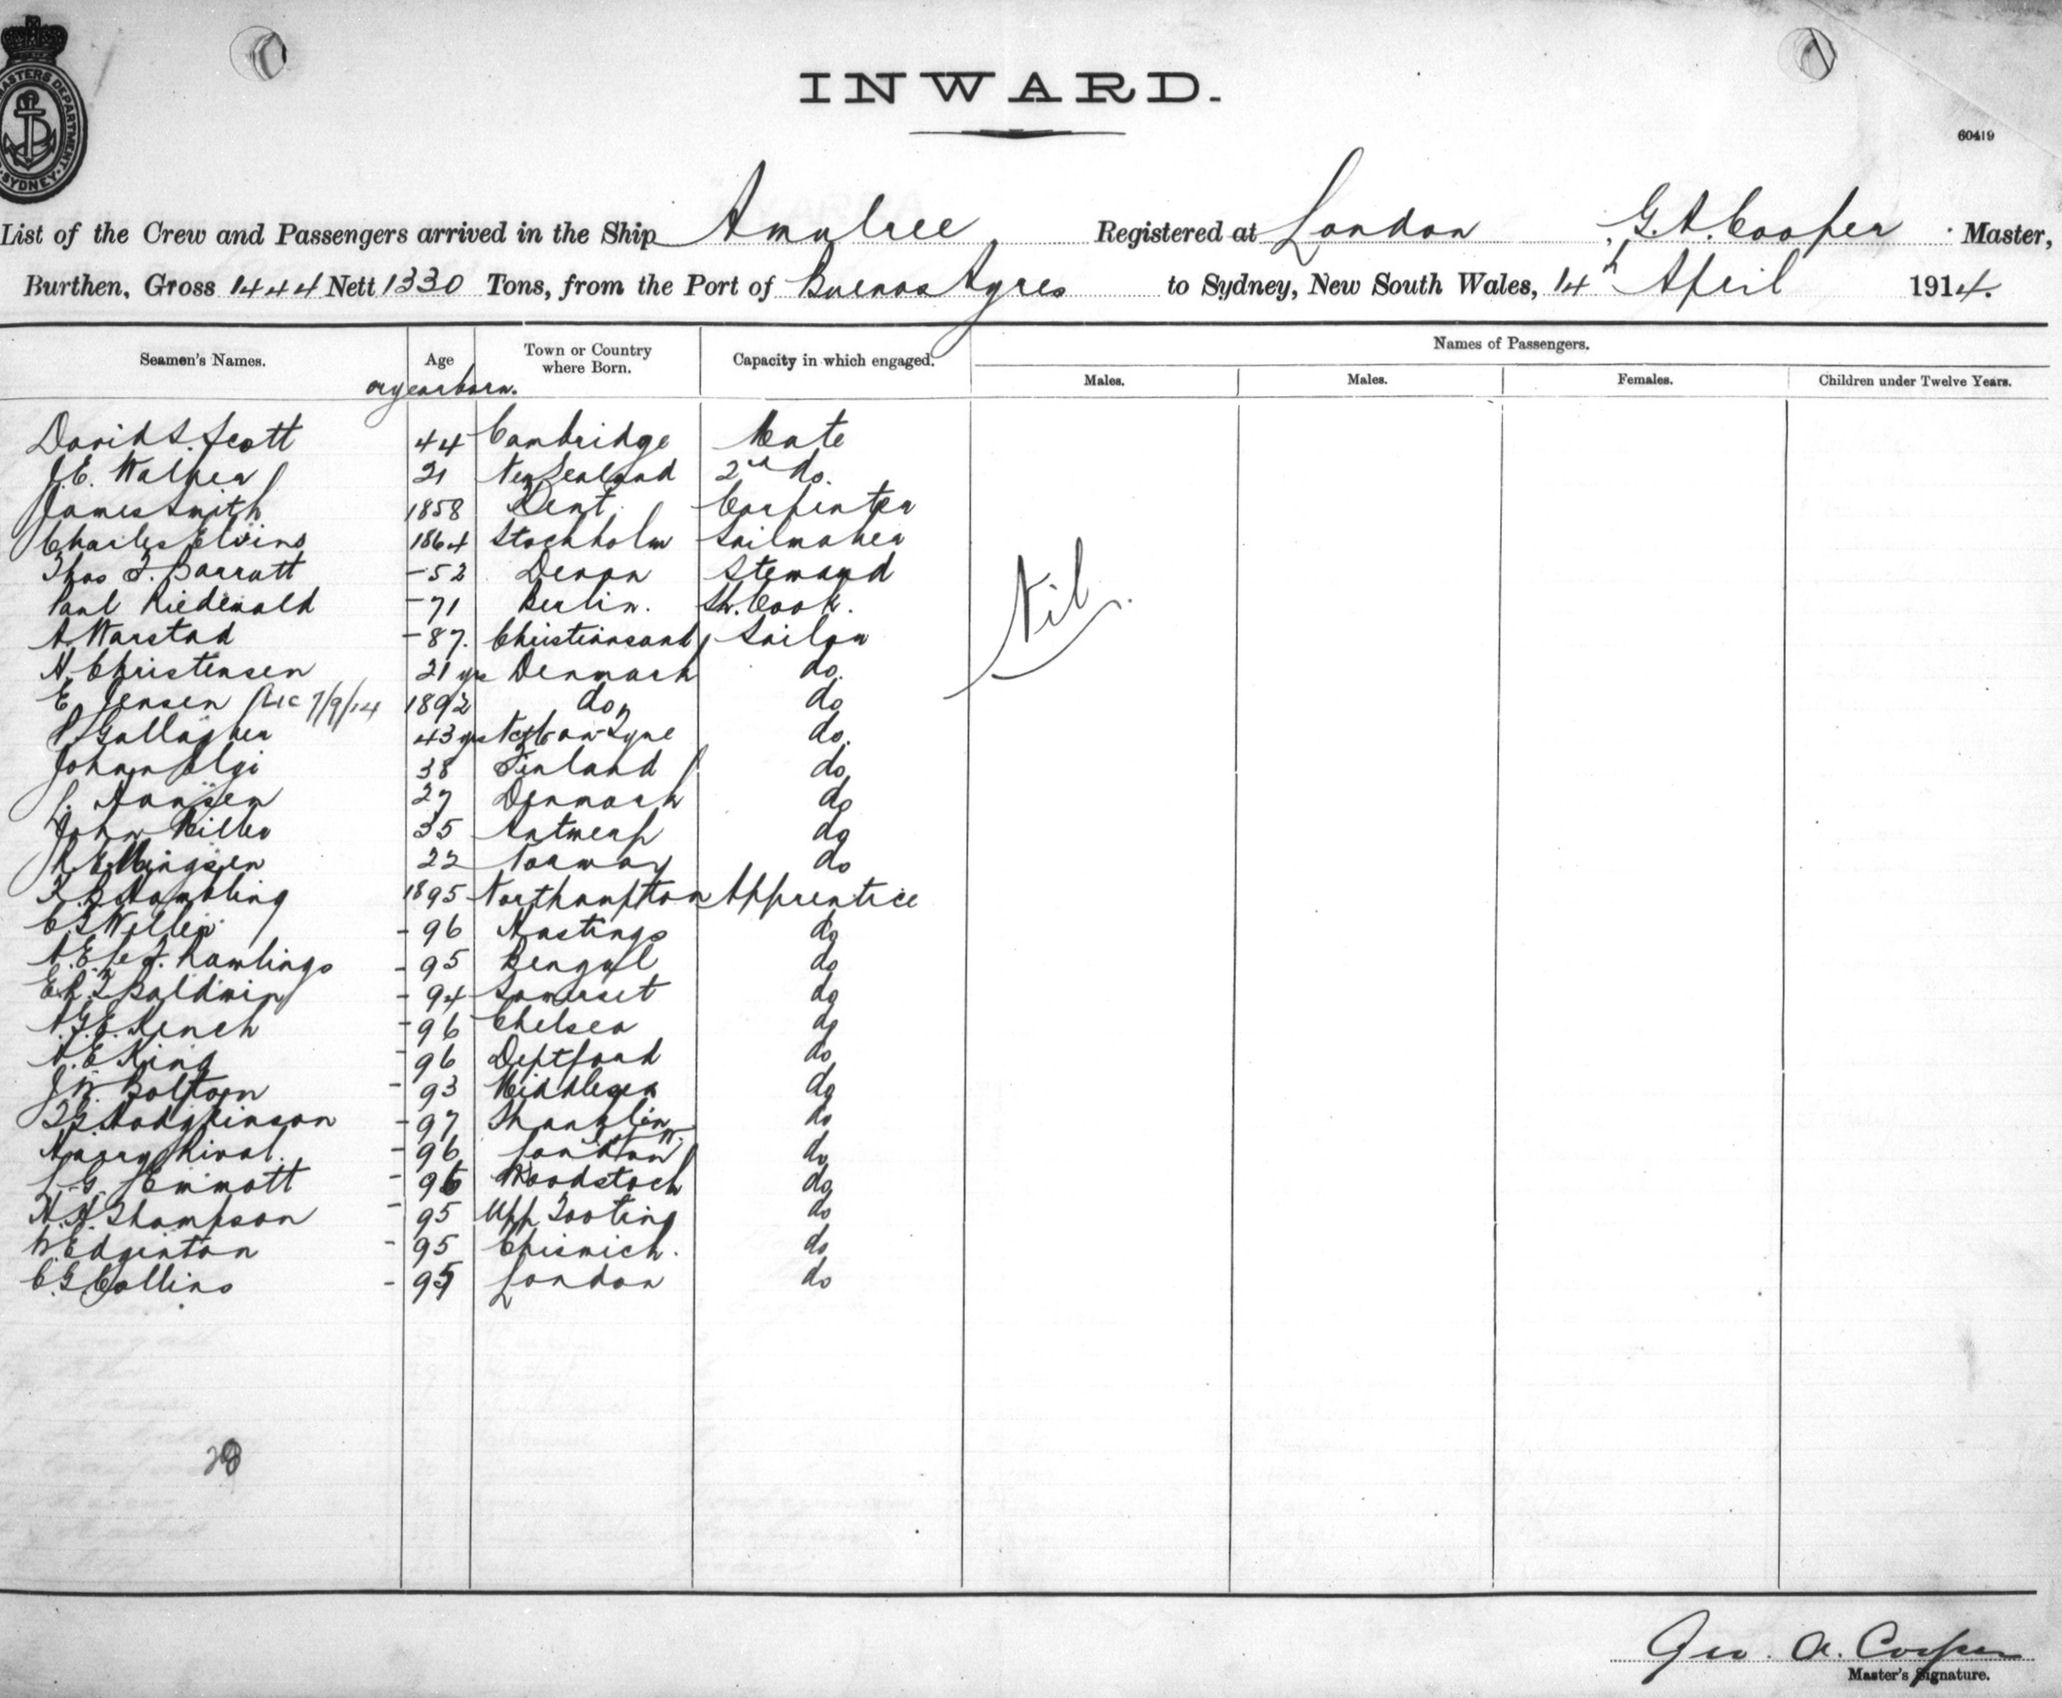 MASTERS DEPARTMENT
SYDNEY
INWARD.
60419
List of the Crew and Passengers arrived in the Ship Amulree Registered at London, G.A. Cooper Master,
Burthen, Gross 1444 Nett 1330 Tons, from the Port of Buenos Ayres to Sydney, New South Wales, 14th April 1914.
Seamen's Names. Age Town or Country where Born. Capacity in which engaged. Names of Passengers.
or year born. Males. Males. Females. Children under Twelve Years.
David S. Scott 44 Cambridge Mate
J.E. Walker 21 New Zealand 2nd do.
James Smith 1858 Kent Carpenter
Charles Elvins 1864 Stockholm Sailmaker
Thos F. Barratt -52 Devon Steward
Paul Riedewald -71 Berlin. Sh. Cook.
A Warstad -87. Christiansand Sailor
Nil
A. Christensen 21 yrs Denmark do.
E Jensen 7/9/14 1892 do do
P. Gallagher 43 yrs do.
Johan 38 Finland do
Hansen 27 Denmark do
John Miller 35 Antwerp do
R. Ellingsen 22 Norway do
Hambling 1895 Northampton Apprentice
C -96 Hastings do
Rawlings -95 Bengal do
Baldwin -94 Somerset do
Kench -96 Chelsea do
A.E. King -96 Deptford do
J.W. -93 Middlesex do
Hodgkinson -97 Shanklin I of W. do
Harry Rival. -96 London do
Emmott -96 Woodstock do
H.A. Thompson -95 Upp Tooting do
Edginton -95 Chiswick. do
C.G. Collins -95 London do
28
Geo. A. Cooper
Master's Signature.